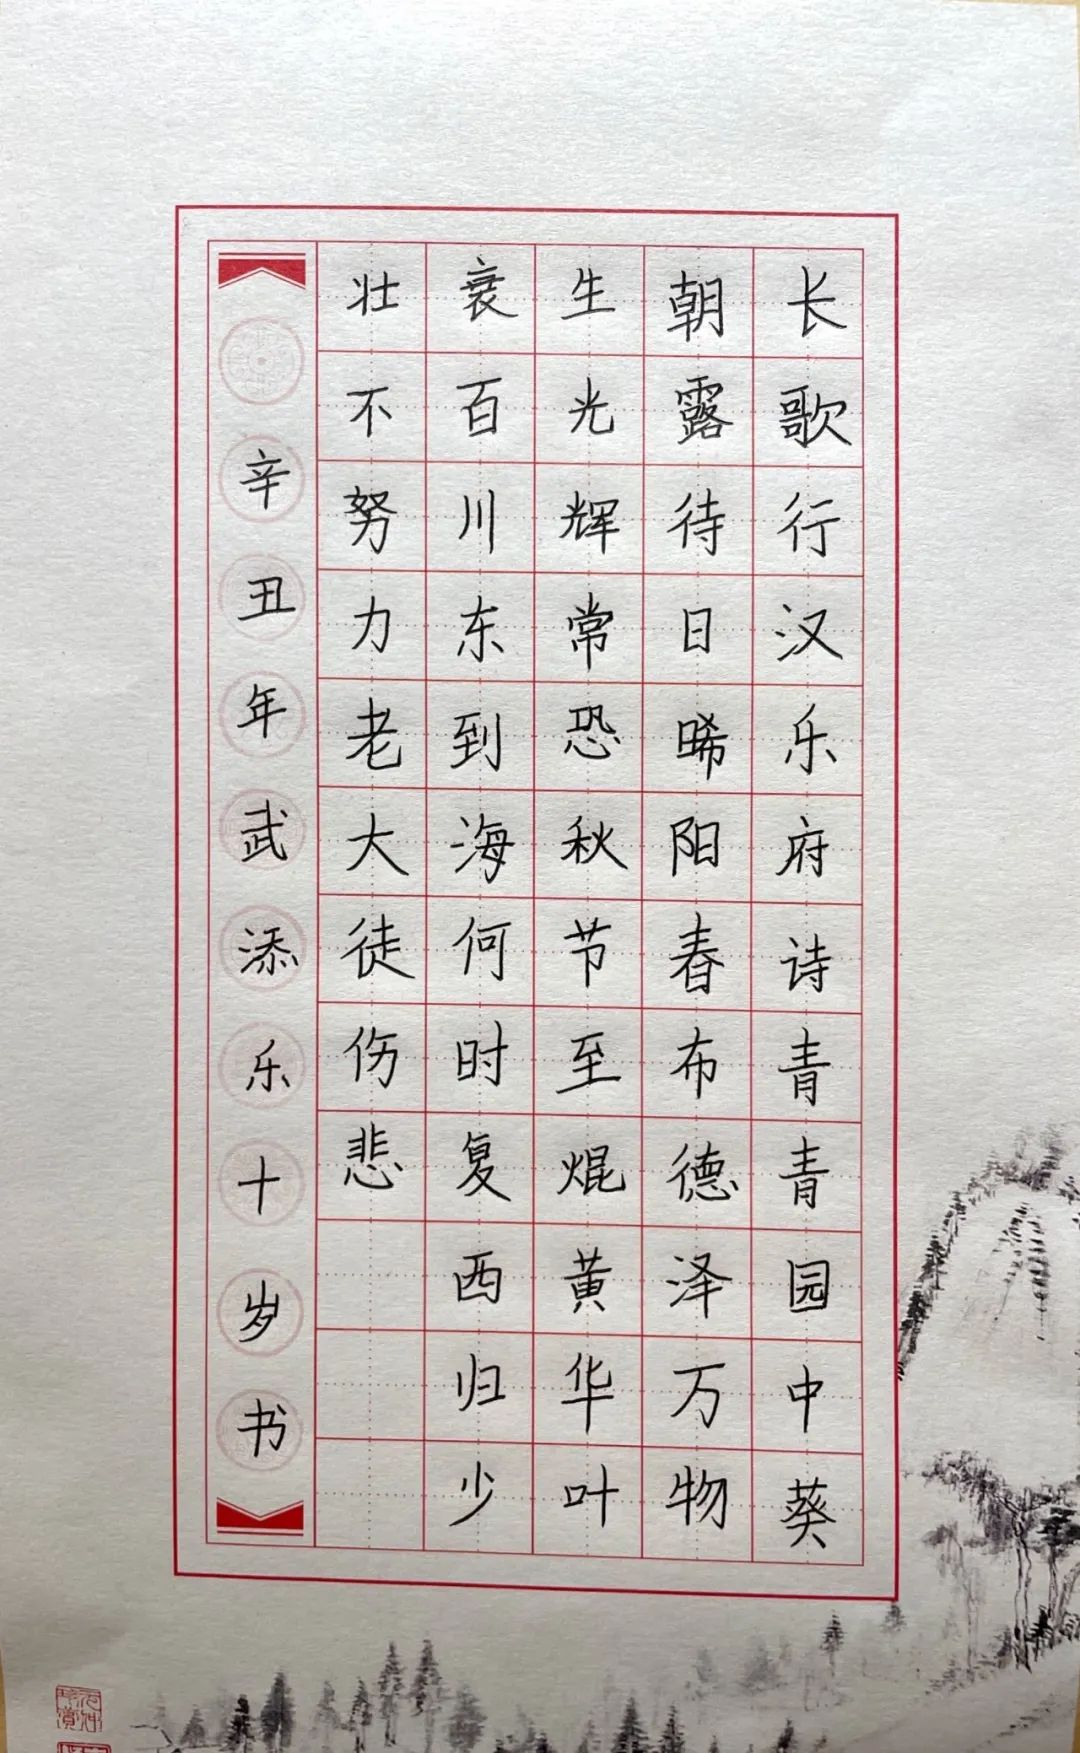 长歌行汉乐府诗青青园中葵
朝露待日晞阳春布德泽万物
生光辉常恐秋节至焜黄华叶
衰百川东到海何时复西归少
壮不努力老大徒伤悲
辛丑年武添乐十岁书